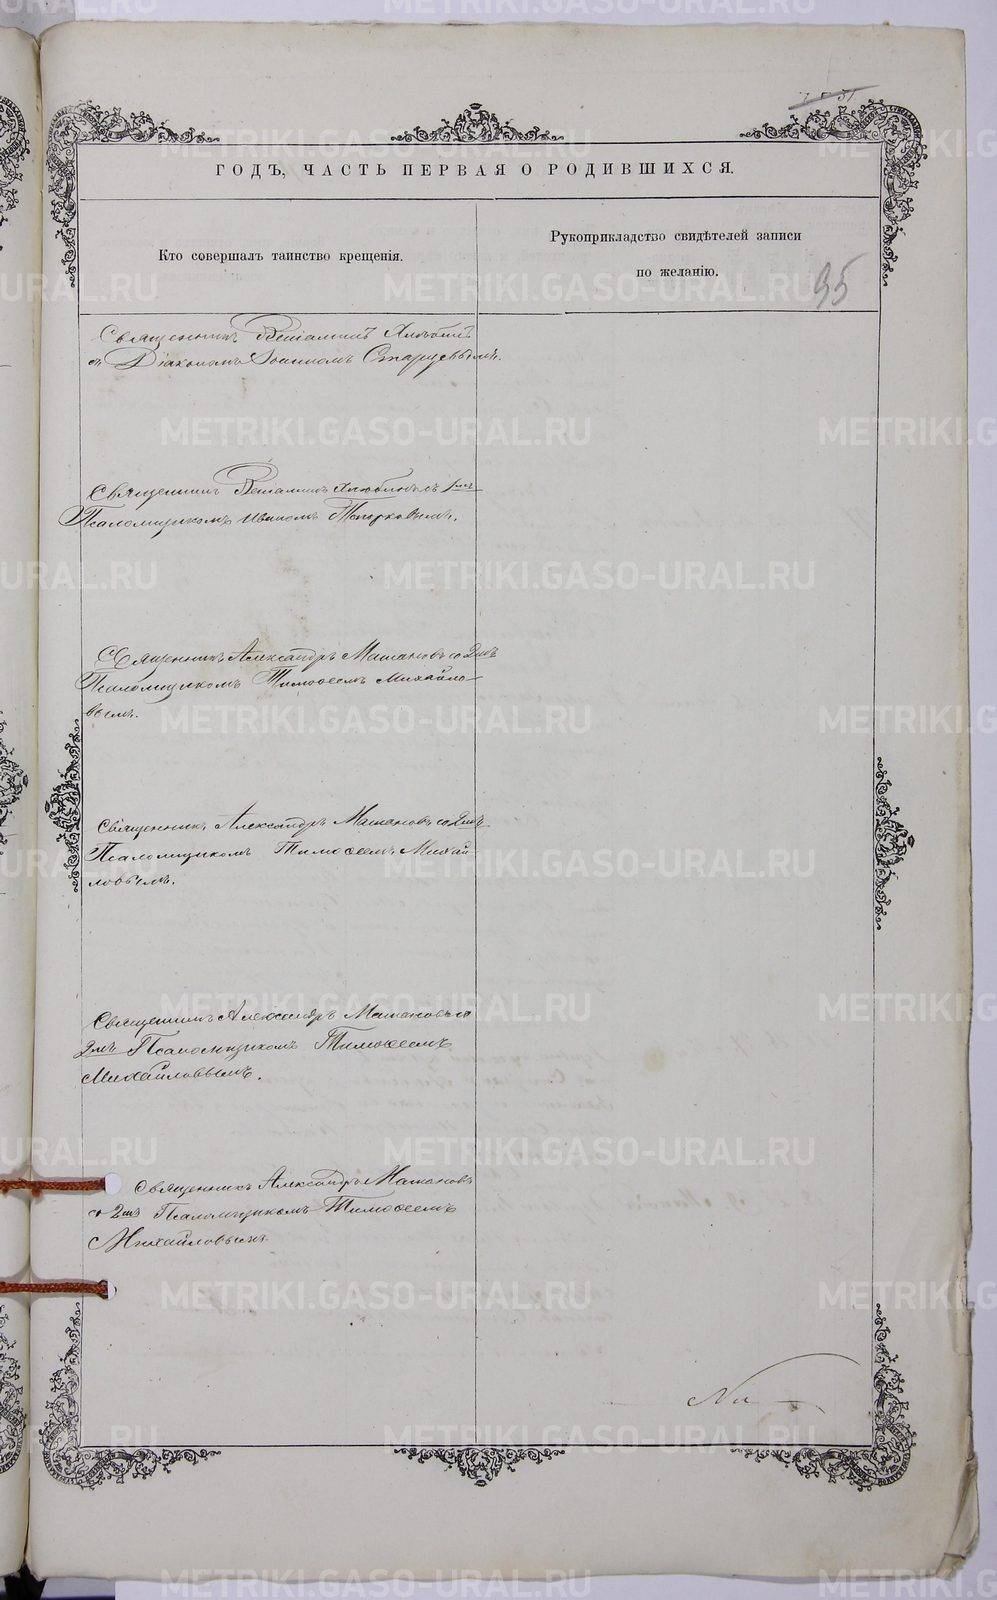 ГОДЪ, ЧАСТЬ ПЕРВАЯ О РОДИВШИХСЯ.
Кто совершалъ таинство крещенія.
Рукоприкладство свидѣтелей записи
по желанію.
95
Священникъ Веніаминъ
съ Діакономъ Іоанномъ Старцевымъ.
Священникъ Веніаминъ Хлюбинъ съ 1мъ
Псаломщикомъ Иваномъ Топорковымъ.
Священникъ Александръ Маманов со 2мъ
Псаломщикомъ Тимоѳеемъ Михайло-
вымъ.
Священникъ Александръ со 2мъ
Псаломщикомъ Тимоѳеемъ Михай-
ловымъ.
Священникъ Александръ со
2мъ Псаломщикомъ Тимоѳеемъ
Михайловымъ.
Священникъ Александръ
съ 2мъ Псаломщикомъ Тимоѳеемъ
Михайловымъ.
METRIKI.GASO-URAL.RU